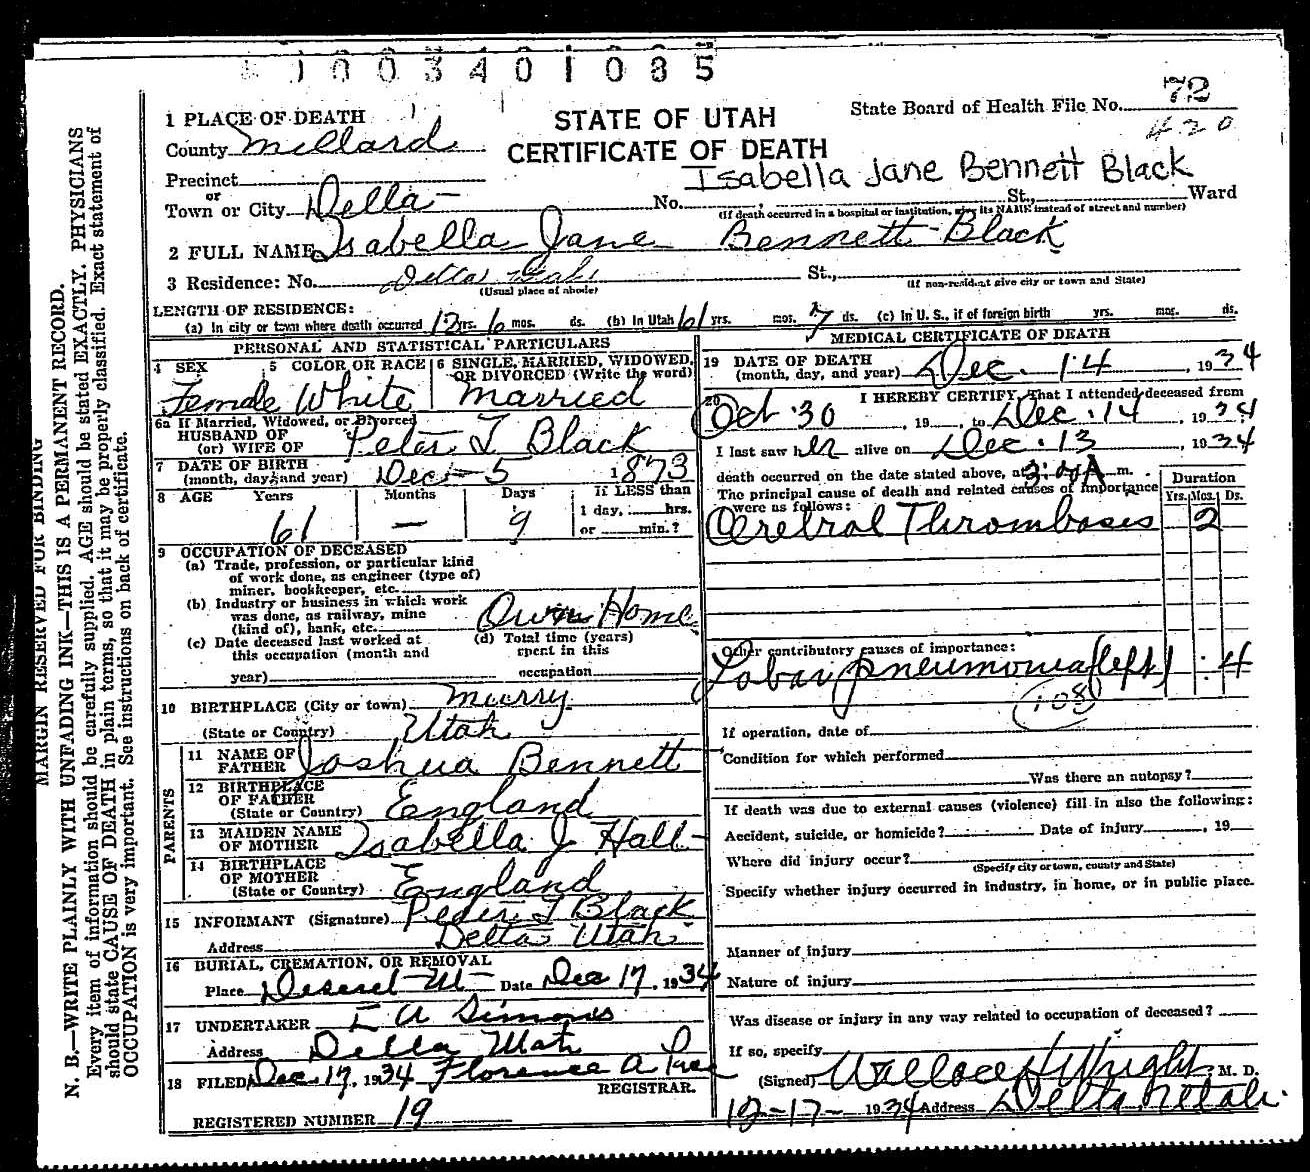 1003401085
STATE OF UTAH
CERTIFICATE OF DEATH
State Board of Health File No. 72
420
Isabella Jane Bennett Black
1 PLACE OF DEATH
County Millard
Precinct
or
Town or City Delta No. , St., Ward
(If death occurred in a hospital or institution, give its NAME instead of street and number)
2 FULL NAME Isabella Jane Bennett Black
3 Residence: No. Delta Utah St.,
(Usual place of abode) (If non-resident give city or town and State)
LENGTH OF RESIDENCE:
(a) In city or town where death occurred 12 yrs. 6 mos. ds. (b) In Utah 61 yrs. mos. 7 ds. (c) In U. S., if of foreign birth yrs. mos. ds.
PERSONAL AND STATISTICAL PARTICULARS
4 SEX 5 COLOR OR RACE 6 SINGLE, MARRIED, WIDOWED, OR DIVORCED (Write the word)
Female White Married
6a If Married, Widowed, or Divorced
HUSBAND OF
(or) WIFE OF Peter T Black
7 DATE OF BIRTH
(month, day, and year) Dec - 5 1873
8 AGE Years Months Days If LESS than
1 day, hrs.
61 — 9 or min.?
9 OCCUPATION OF DECEASED
(a) Trade, profession, or particular kind
of work done, as engineer (type of)
miner, bookkeeper, etc.
(b) Industry or business in which work
was done, as railway, mine
(kind of), bank, etc. Own Home
(c) Date deceased last worked at
this occupation (month and
year)
(d) Total time (years)
spent in this
occupation
10 BIRTHPLACE (City or town) Murry
(State or Country) Utah
PARENTS
11 NAME OF
FATHER Joshua Bennett
12 BIRTHPLACE
OF FATHER
(State or Country) England
13 MAIDEN NAME
OF MOTHER Isabella J Hall
14 BIRTHPLACE
OF MOTHER
(State or Country) England
15 INFORMANT (Signature) Peter T Black
Address Delta Utah
16 BURIAL, CREMATION, OR REMOVAL
Place Deseret Ut Date Dec 17, 1934
17 UNDERTAKER E A Simons
Address Delta Utah
18 FILED Dec. 17, 1934 Florence A
REGISTRAR.
REGISTERED NUMBER 19
MEDICAL CERTIFICATE OF DEATH
19 DATE OF DEATH
(month, day, and year) Dec. 14, 1934
20 I HEREBY CERTIFY, That I attended deceased from
Oct. 30, 19 , to Dec. 14, 1934
I last saw her alive on Dec. 13 1934
death occurred on the date stated above, at 3:00 A m.
The principal cause of death and related causes of importance
were as follows:
Duration
Yrs. Mos. Ds.
Cerebral Thrombosis 2
Other contributory causes of importance:
Lobar pneumonia (left) 4
108
If operation, date of
Condition for which performed
Was there an autopsy?
If death was due to external causes (violence) fill in also the following:
Accident, suicide, or homicide? Date of injury , 19
Where did injury occur?
(Specify city or town, county and State)
Specify whether injury occurred in industry, in home, or in public place.
Manner of injury
Nature of injury
Was disease or injury in any way related to occupation of deceased?
If so, specify
(Signed) Wallace H Wright, M. D.
12-17- 1934 Address Delta, Utah.
MARGIN RESERVED FOR BINDING
N. B.—WRITE PLAINLY WITH UNFADING INK—THIS IS A PERMANENT RECORD.
Every item of information should be carefully supplied. AGE should be stated EXACTLY. PHYSICIANS
should state CAUSE OF DEATH in plain terms, so that it may be properly classified. Exact statement of
OCCUPATION is very important. See instructions on back of certificate.